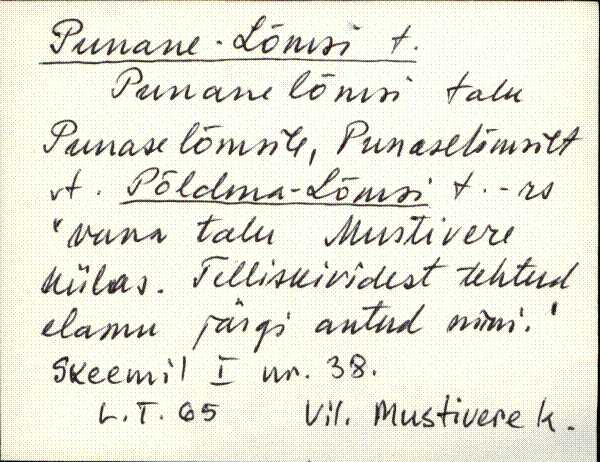 Punane-Lõmsi t.
Punane lõmsi talu
Punaselõmsile, Punaselõmsilt
vt. Põldma-Lõmsi t.-rs
"vana talu Mustivere
külas. Telliskividest tehtud
elamu järgi antud nimi."
Skeemil I nr. 38.
L.T. 65 Vil. Mustivere k.